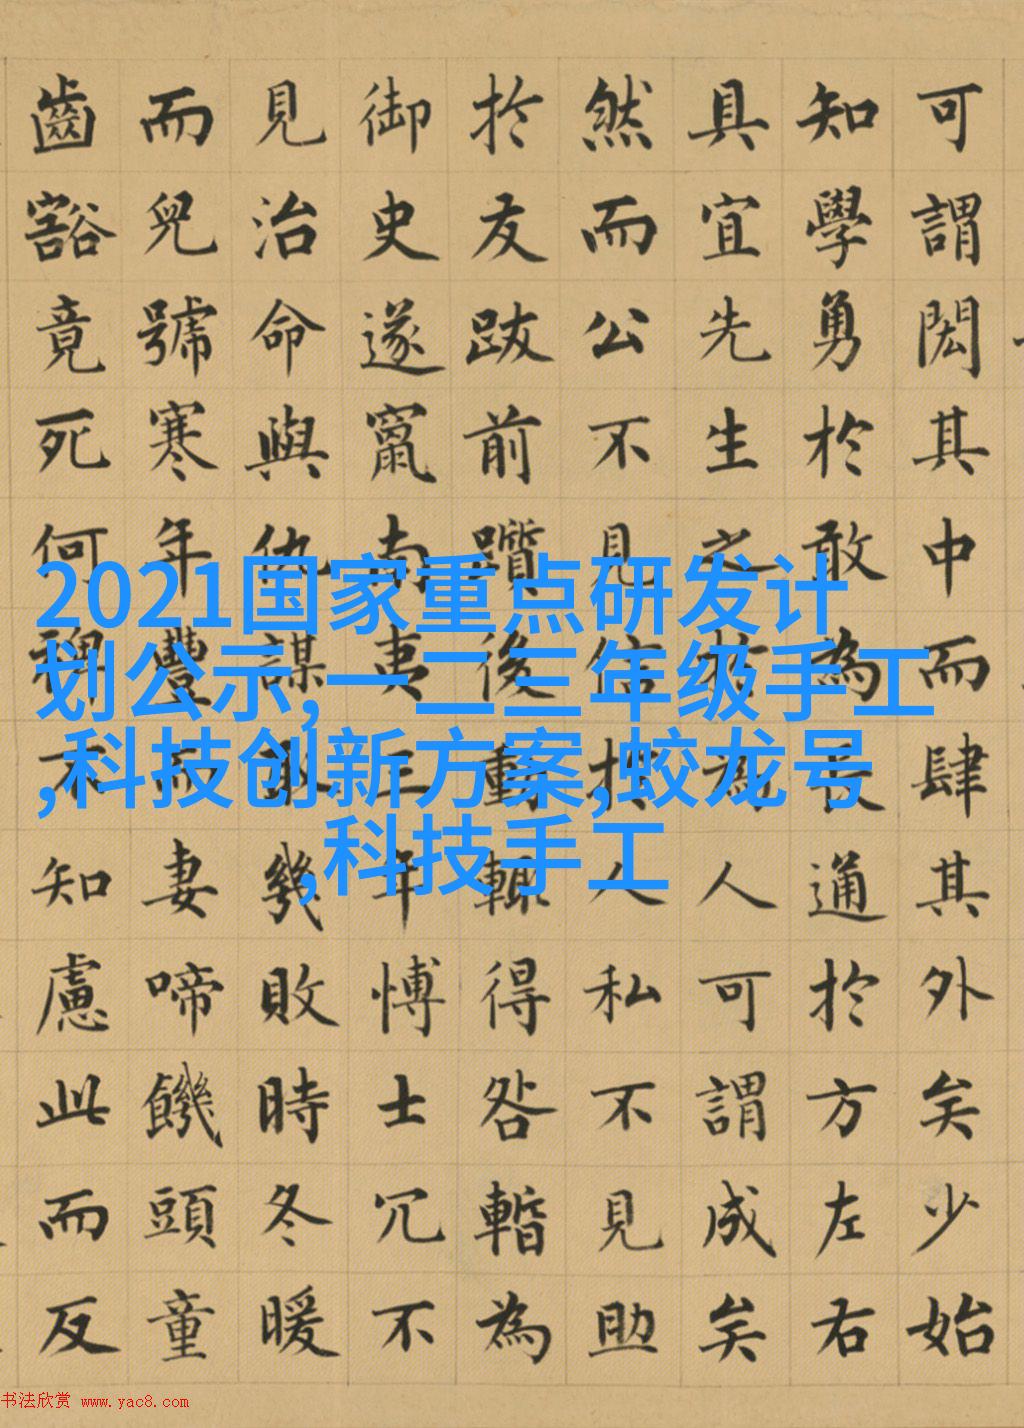 可謂閎其中而肆其外矣少始
知學勇於敢為長通於方左右
具宜先生之於為人可謂成矣
然而公不見信於人私不見助
於友跋前躓後動輒得咎暫為
御史遂竄南夷三年博士冗不
見治命與仇謀取幾敗時冬暖
而兒號寒年豐而妻啼饑頭童
齒豁竟死何裨不知慮此而反
2021国家重点研发计
划公示,一二三年级手工
,科技创新方案,蛟龙号
,科技手工
书法欣赏 www.yac8.com